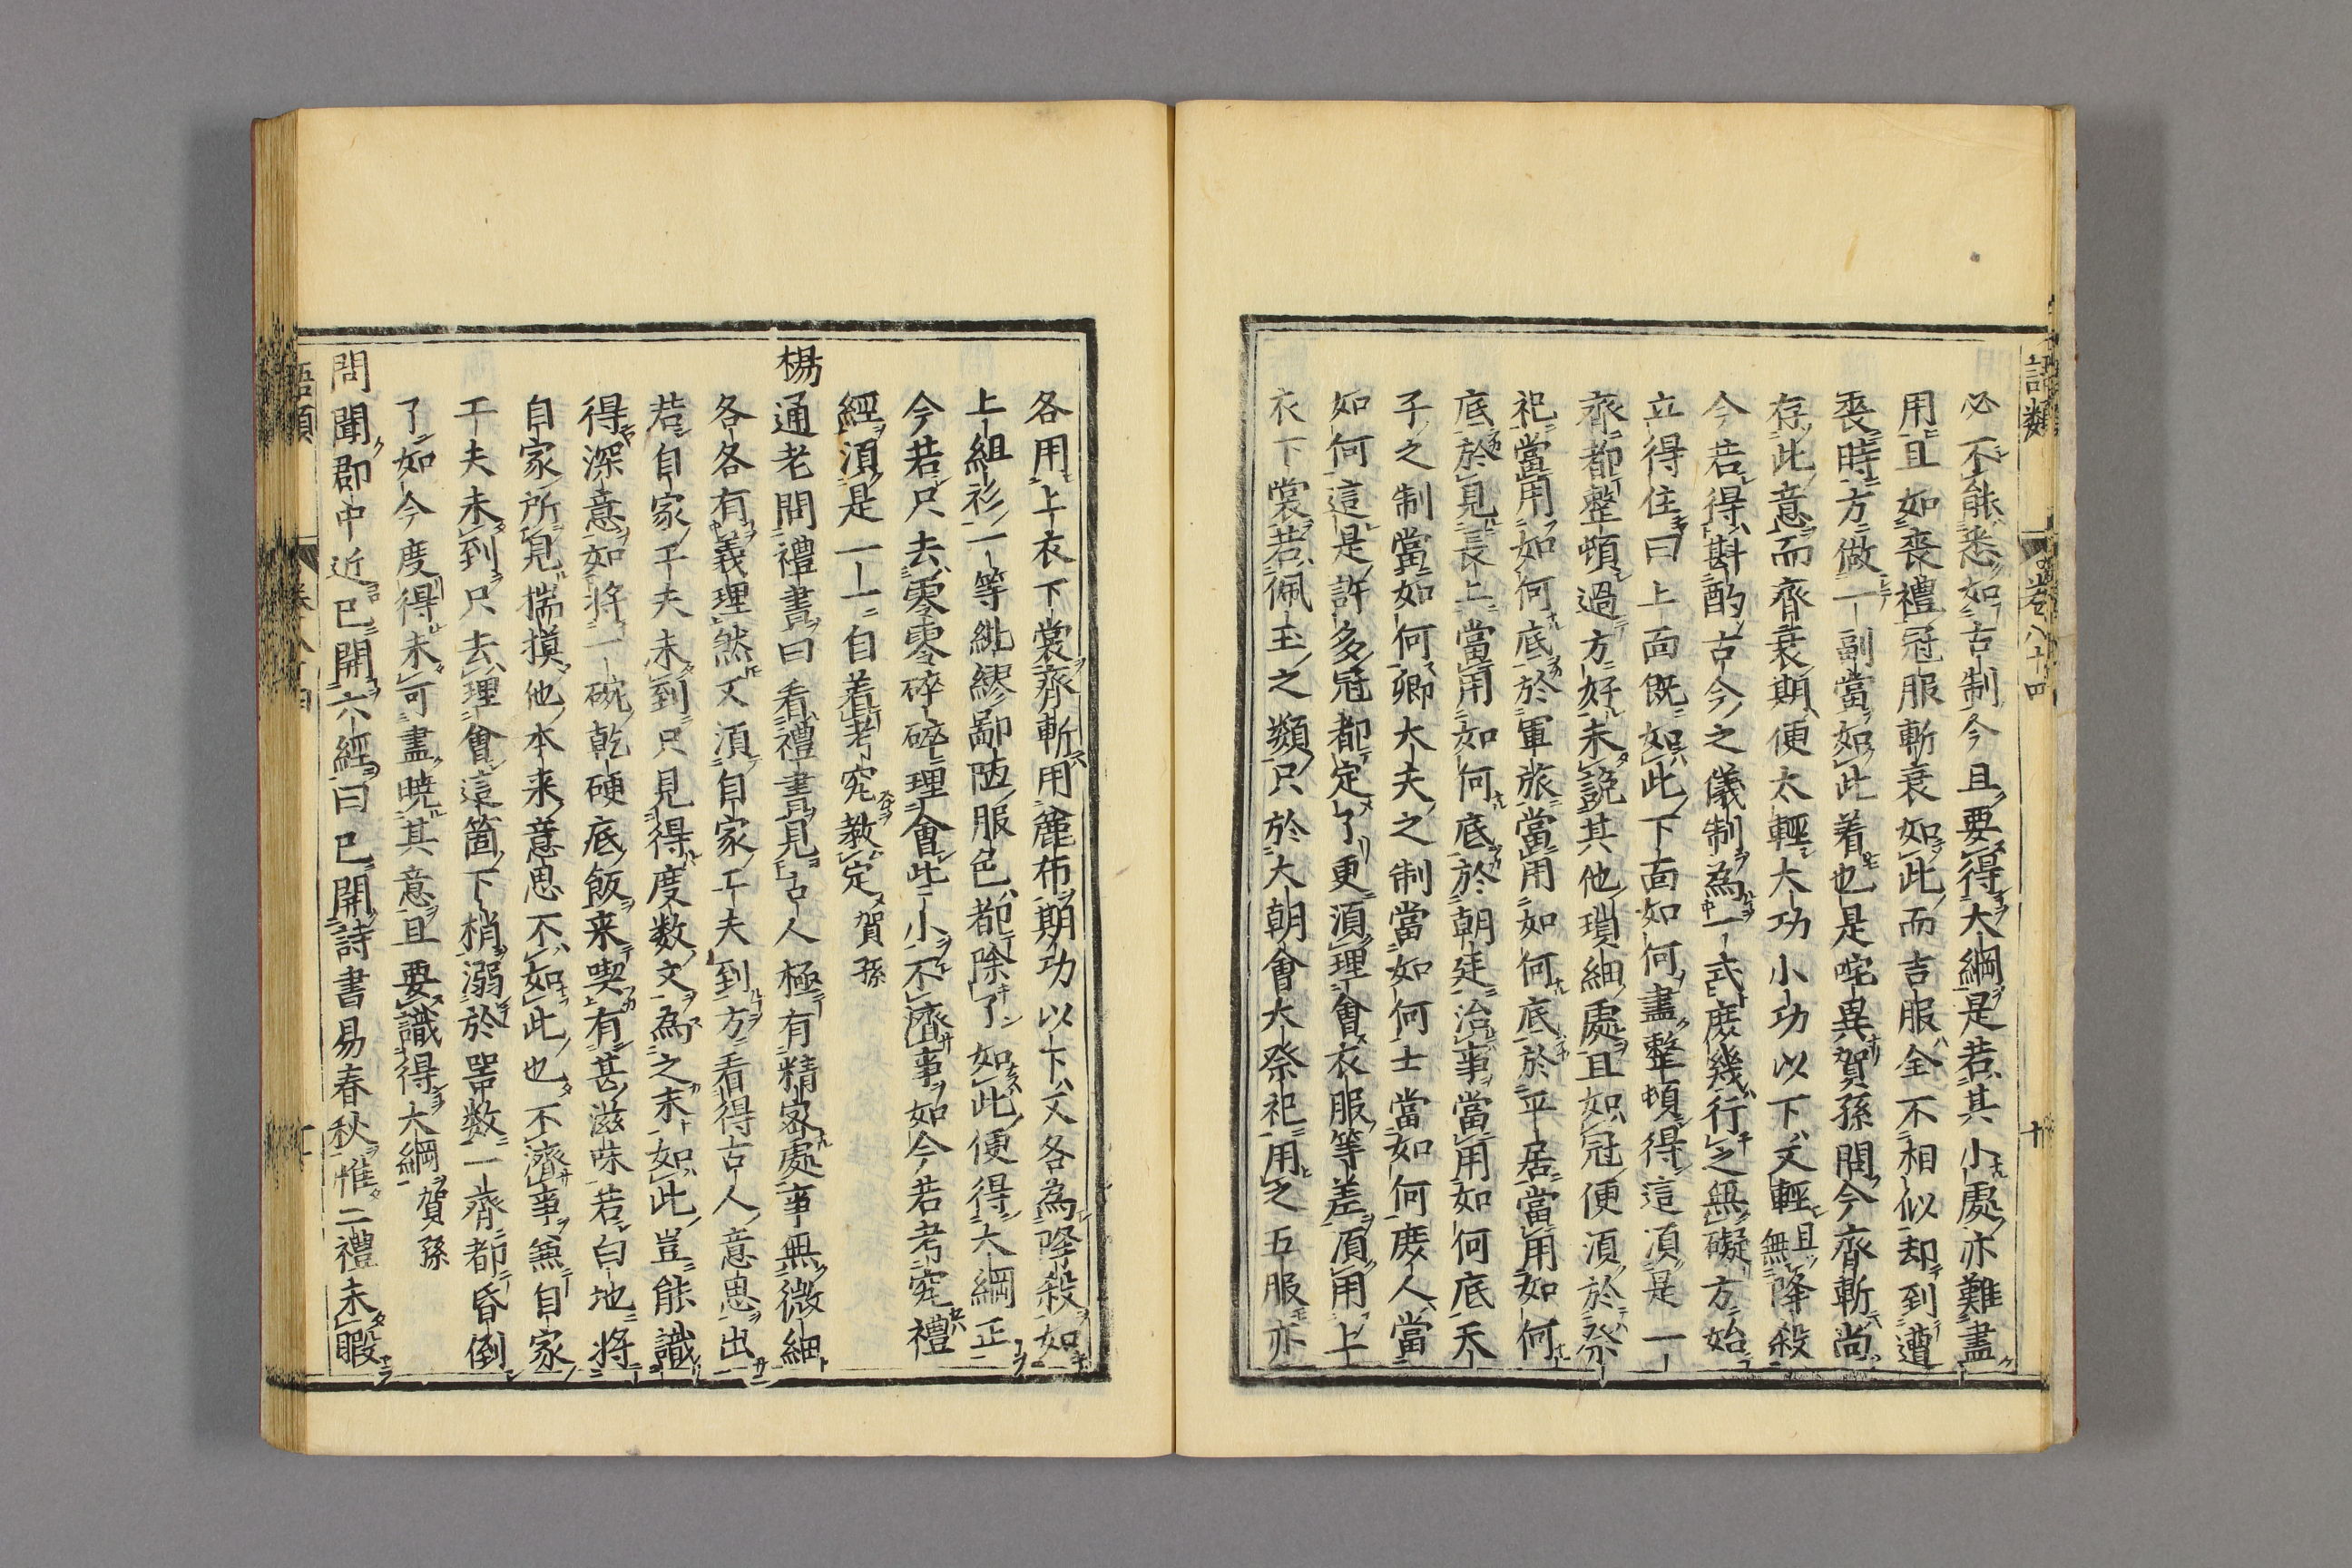 語類 卷八十四 十
必不能悉如古制今且要得大綱是若其小處亦難盡
用且如喪禮冠服斬衰如此而吉服全不相似却到遭
喪時方做一副當如此着也是咤異賀孫問今齊斬尚
存此意而齊衰期便太輕大功小功以下又輕且無降殺
今若得斟酌古今之儀制為一式庶幾行之無礙方始
立得住曰上面既如此下面如何盡整頓得這須是一一
齊都整頓過方好未說其他瑣細處且如冠便須於祭
祀當用如何底於軍旅當用如何底於平居當用如何
底於見長上當用如何底於朝廷治事當用如何底天
子之制當如何卿大夫之制當如何士當如何庶人當
如何這是許多冠都定了更須理會衣服等差須用上
衣下裳若佩玉之類只於大朝會大祭祀用之五服亦
各用上衣下裳齊斬用麄布期功以下又各為降殺如
上組衫一等紕繆鄙陋服色都除了如此便得大綱正
今若只去零零碎碎理會此小不濟事如今若考究禮
經須是一一自着考究教定 賀孫
楊通老問禮書曰看禮書見古人極有精密處事無微細
各各有義理然又須自家工夫到方看得古人意思出
若自家工夫未到只見得度數文為之末如此豈能識
得深意如將一碗乾硬底飯来喫有甚滋味若白地將
自家所見揣摸他本来意思不如此也不濟事兼自家
工夫未到只去理會這箇下梢溺於器數一齊都昏倒
了如今度得未可盡曉其意且要識得大綱 賀孫
問聞郡中近已開六經曰已開詩書易春秋惟二禮未暇
語類 卷八十四